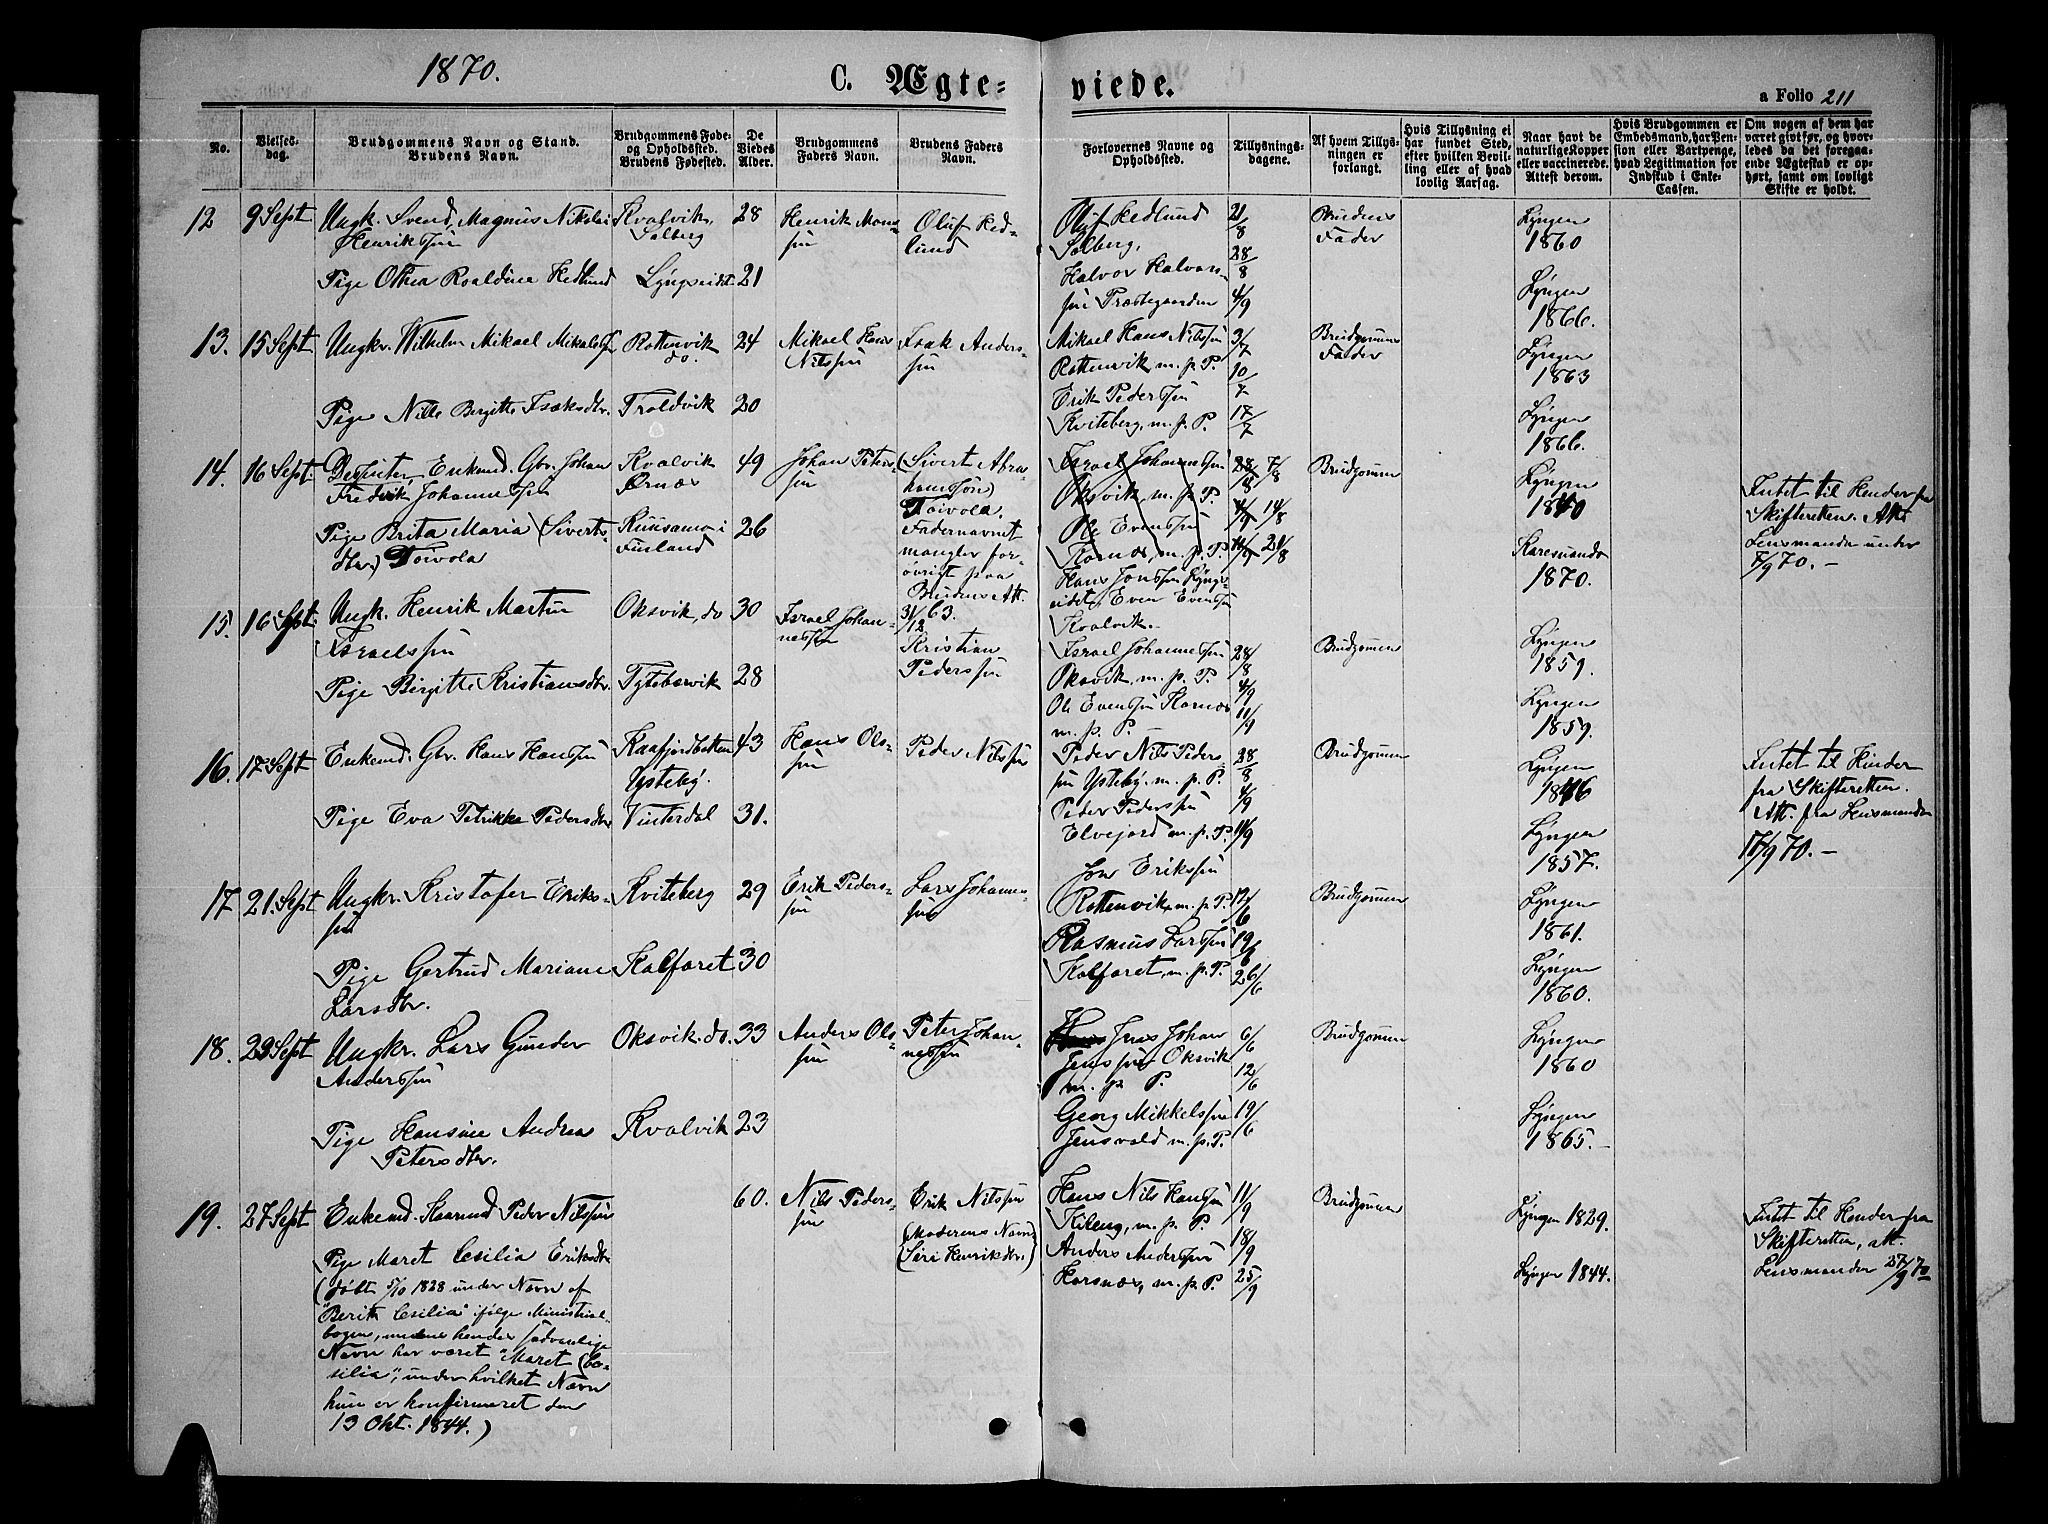 1870.
C. Ægteviede.
a Folio 211
No.
Vielses-
dag.
Brudgommens Navn og Stand.
Brudens Navn.
Brudgommens Føde-
og Opholdssted.
Brudens Fødested.
De
Viedes
Alder.
Brudgommens
Faders Navn.
Brudens Faders
Navn.
Forlovernes Navne og
Opholdssted.
Tillysnings-
dagene.
Af hvem Tillys-
ningen er
forlangt.
Hvis Tillysning ei
har fundet Sted,
efter hvilken Bevil-
ling eller af hvad
lovlig Aarsag.
Naar havt de
naturlige Kopper
eller vaccinerede.
Attest derom.
Hvis Brudgommen er
Embedsmand, har Pen-
sion eller Vartpenge,
hvad Legitimation for
Indskud i Enke-
Cassen.
Om nogen af dem har
været gift før, og hvor-
ledes da det foregaa-
ende Ægtestad er op-
hørt, samt om lovligt
Skifte er holdt.
12 9 Sept
Ungk. Svend Magnus Nikolai
Henrikssøn
Pige Othea Roaldine Hedlund
Kvalvik,
Solberg
Lyngseidet
28
21
Henrik Mons-
søn
Oluf Hed-
lund
Oluf Hedlund
Solberg,
Halvor Halvors-
søn Præstegaarden
21/8
28/8
4/9
Brudens
Fader
Lyngen
1860
Lyngen
1866.
13. 15 Sept
Ungkr. Wilhelm Mikael Mikals
Pige Nille Bergitte Isaksdtr.
Rottenvik
do.
Troldvik
24
20
Mikael Hans
Nilssøn
Isak Anders-
søn
Mikael Hans Nilssøn
Rottenvik, m. p. P.
Erik Pederssøn
Kviteberg, m. p. P.
3/7
10/7
17/7
Brudgommens
Fader
Lyngen
1863
Lyngen
1866.
14. 16 Sept.
Enkemd. Gbr. Johan
Fredrik Johannessøn
Pige Brita Maria (Siverts-
dtr.) Toivola
Kvalvik
Kuusamo i
Finland
49
26
Johan Peters-
søn
(Sivert Abra-
hamssøn)
Toivola.
Fadernavnet
mangler for-
øvrigt paa
Brudens Att.
31/12 63.
Israel Johannessøn
Oksvik, m. p. P.
Ole Evenssøn
Kornæs, m. p. P.
Hans Jonssøn Lyngs-
eidet, Even Evenssøn
Kvalvik.
28/8 7/8
4/9 14/8
11/9 21/8
Brudgommen
Lyngen
1840
Karesuando
1870.
Intet til Hinder fra
Skifteretten. Att.
Lensmanden under
7/9 70.
15. 16 Sept.
Ungk. Henrik Martin
Israelssøn
Pige Birgitte Kristiansdtr.
Oksvik, do
Tyttebærvik
30
28
Israel Johan-
nessøn
Kristian
Pederssøn
Israel Johannessøn
Oksvik, m. p. P.
Ole Evenssøn Kornæs
m. p. P.
28/8
4/9
11/9
Brudgommen
Lyngen
1859.
Lyngen
1859.
16. 17 Sept
Enkemd. Gbr. Hans Hanssøn
Pige Eva Petrikke Pedersdtr
Kaafjordbotten
Ysteby.
Vinterdal
43
31.
Hans Ols-
søn
Peder Nilssøn
Peder Nils Peders
søn Ysteby, m. p. P.
Peder Pederssøn
Elvejord m. p. P.
28/8
4/9
11/9
Brudgommen
Lyngen
1846
Lyngen
1857.
Intet til Hinder
fra Skifteretten.
Att. fra Lensmanden
17/9 70.
17 21. Sept
Ungkr. Kristofer Eriks-
søn
Pige Gertrud Mariane
Larsdtr.
Kviteberg
Kalfaret
29
30
Erik Peders-
søn
Lars Johannes-
søn
Jon Erikssøn
Rottenvik, m. p. P.
Rasmus Larssøn
Kalfaret, m. p. P.
12/6
19/6
26/6
Brudgommen
Lyngen
1861.
Lyngen
1860.
18. 23 Sept
Ungkr. Lars Gunder
Anderssøn
Pige Hansine Andrea
Petersdtr.
Oksvik. do.
Kvalvik
33
23
Anders Ols-
søn
Peter Johan-
nessøn
Jens Johan
Jenssøn Oksvik
m. p. P.
Georg Mikkelssøn
Jensvold m. p. P.
6/6
12/6
19/6
Brudgommen
Lyngen
1860
Lyngen
1865.
19. 27 Sept
Enkemd. Kaarmd Peder Nilssøn
Pige Maret Cesilia Eriksdtr
(døbt 5/10 1828 under Navn af
"Berit Cesilia" ifølge Ministrial-
bogen, medens hendes sædvanlige
Navn har været "Maret Ce-
silia", under hvilket Navn
hun er konfirmeret den
13 Okt. 1844.)
60.
Nils Peders-
søn
Erik Nilssøn
(Moderens Navn
Siri Henriksdtr.)
Hans Nils Hanssøn
Kileng, m. p. P.
Anders Anderssøn
Horsnæs, m. p. P.
11/9
18/9
25/9
Brudgommen
Lyngen 1829.
Lyngen 1844.
Intet til Hinder fra
Skifteretten, att.
Lensmanden 27/9 70